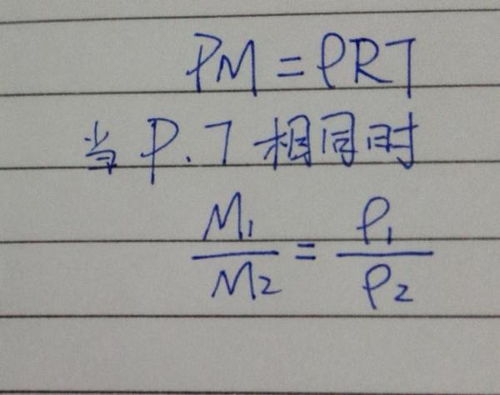 PM=ρRT
当P.T相同时
M₁/M₂=ρ₁/ρ₂